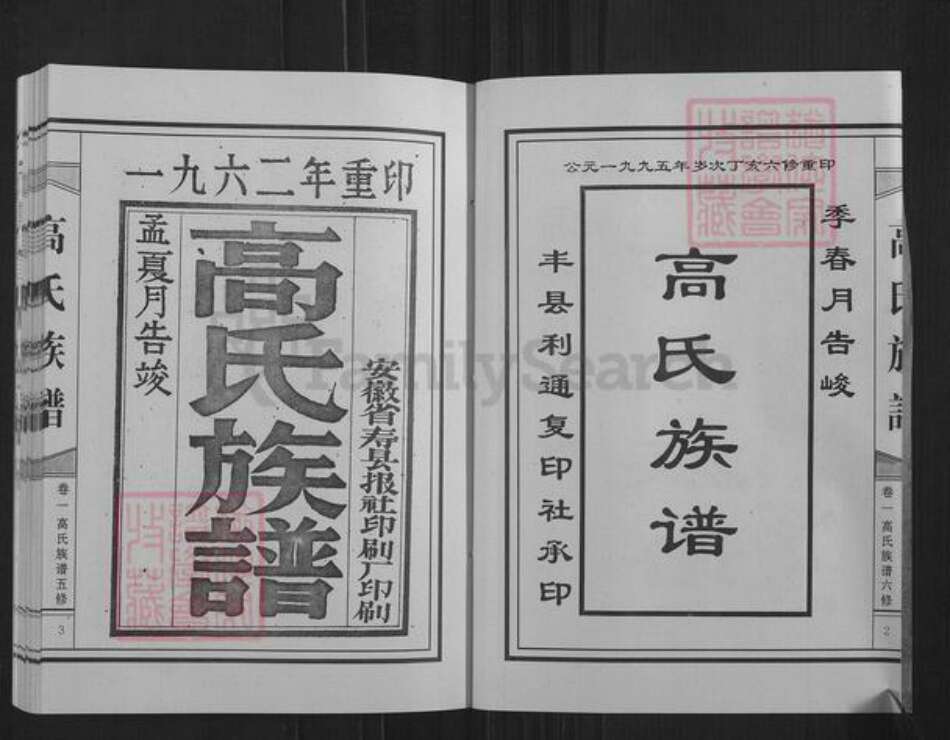 公元一九九五年岁次丁亥六修重印
季春月告峻
高氏族谱
丰县利通复印社承印
高氏族谱
卷一高氏族谱六修
2
一九六二年重印
安徽省寿县报社印刷厂印刷
高氏族譜
孟夏月告竣
高氏族谱
卷一高氏族谱五修
3
FamilySearch